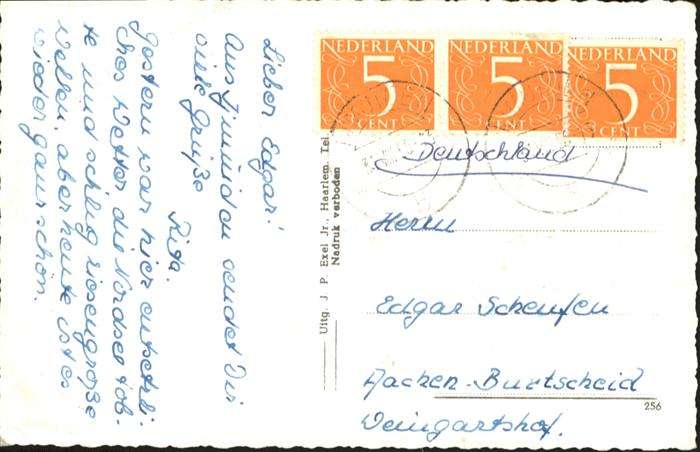 Lieber Edgar!
Aus Ijmuiden sendet Dir
viele Grüße
Rita.
Gestern war hier entsetzli
ches Wetter die Nordsee tob-
te und schlug riesengroße
Wellen, aber heute ist es
wieder ganz schön.
Uitg. J. P. Exel Jr., Haarlem. Tel.
Nadruk verboden
NEDERLAND
5
CENT
NEDERLAND
5
CENT
NEDERLAND
5
CENT
Deutschland
Herrn
Edgar Scheufen
Aachen-Burtscheid
Weingartshof.
256